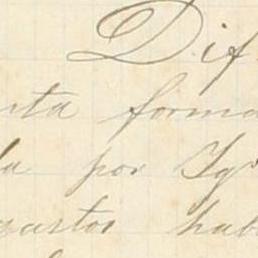 Dif
nta forma
la por Ygn
gastos hab